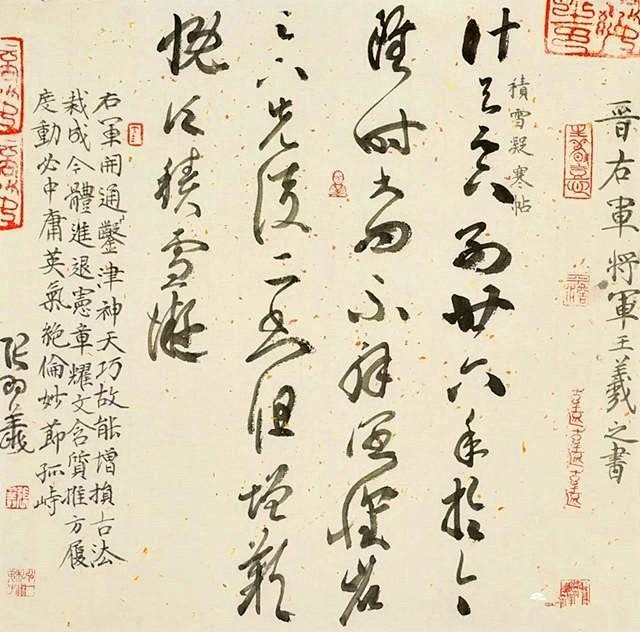 晉右軍將軍王羲之書
積雪凝寒帖
計与足下別廿六年於今
雖時書問不解闊懷省
足下先後二書但增歎
慨頃積雪凝
右軍開通鑿津神天巧故能增損古法
裁成今體進退憲章耀文含質推方履
度動必中庸英氣絕倫妙節孤峙